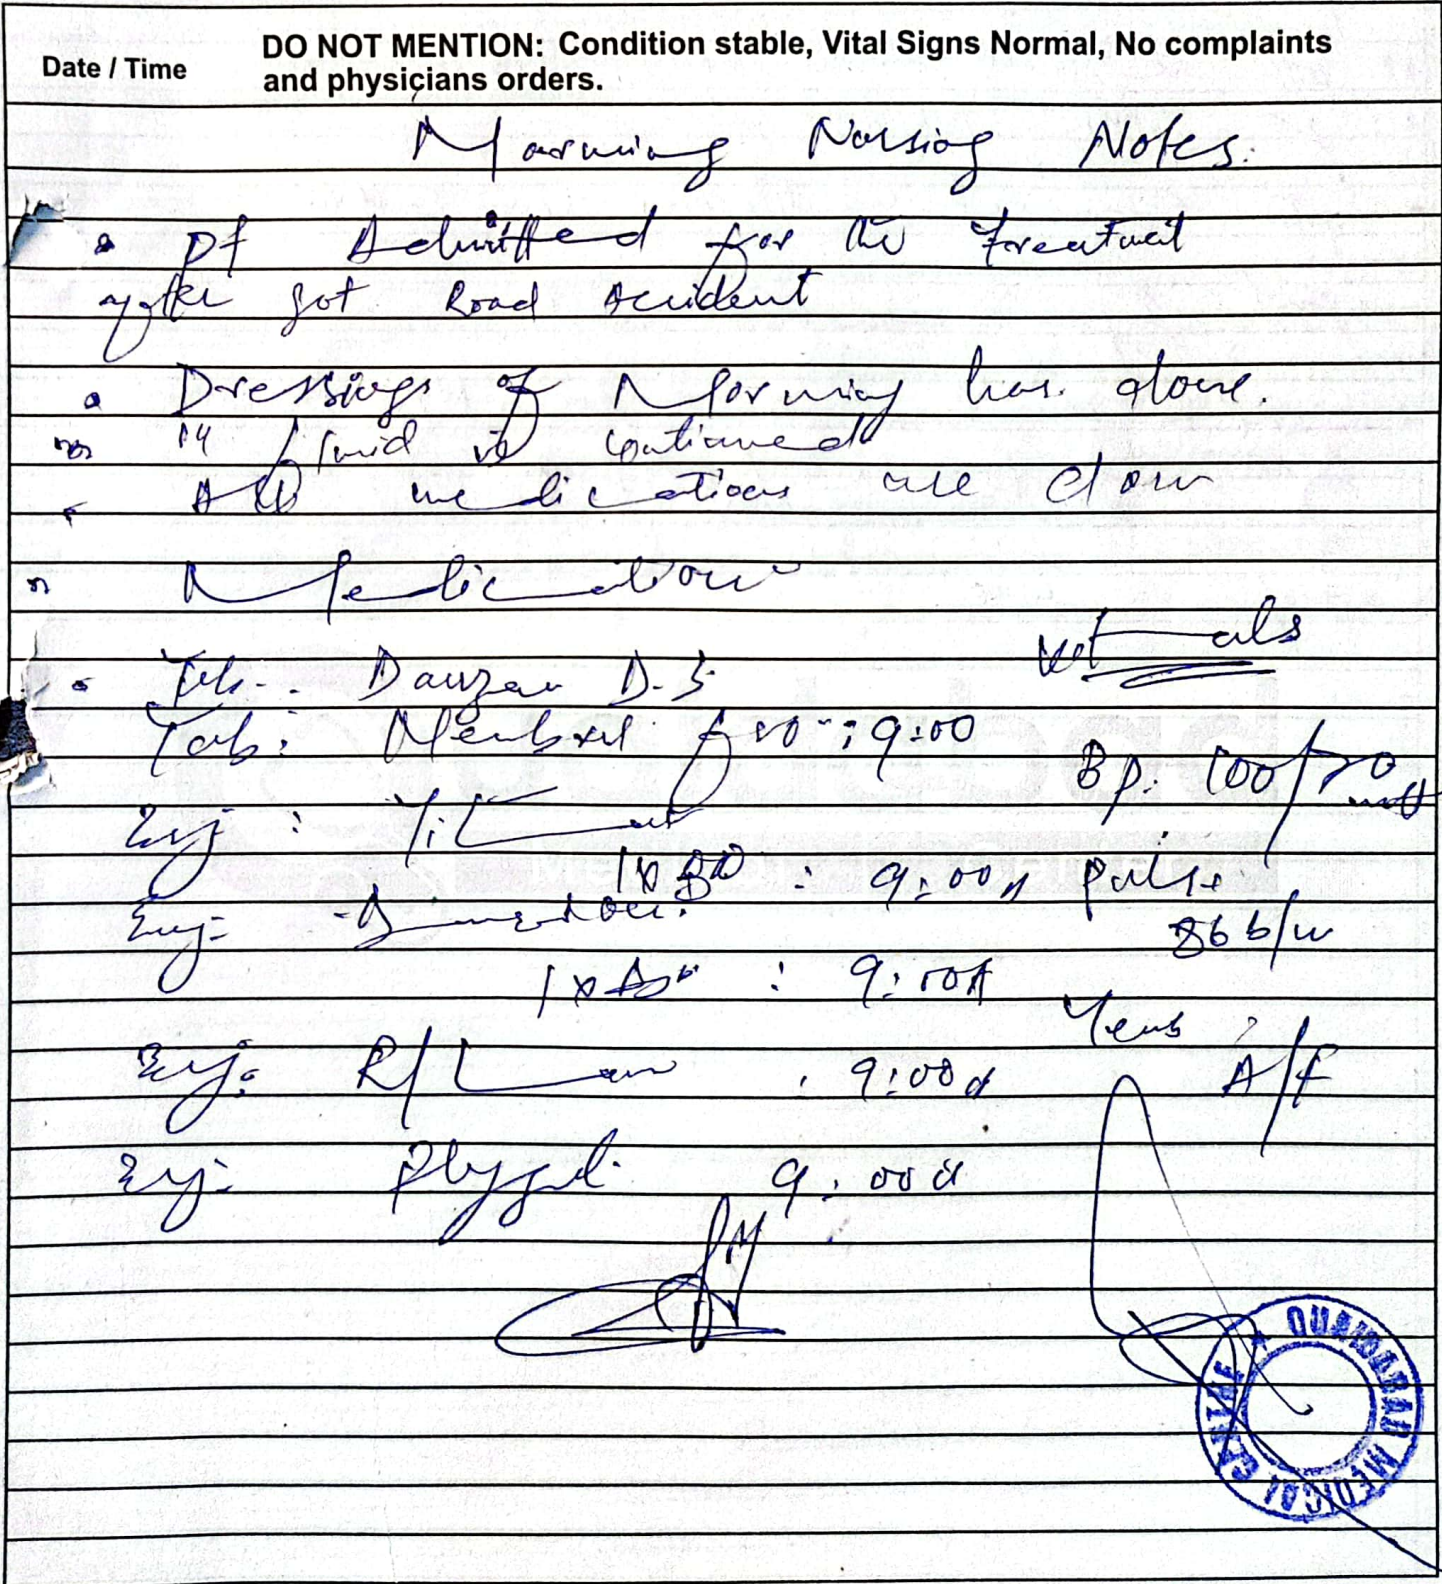 Date / Time
DO NOT MENTION: Condition stable, Vital Signs Normal, No complaints
and physicians orders.
Morning Nursing Notes:
• Pt Admitted for the treatment
after got Road Accident
• Dressings of Morning has done.
IV fluid is continued
All medications are done
Medications
Vitals
Tab: Danzen D.S
Tab: 9:00
BP: 100/70
Inj:
1x BD : 9:00A Pulse
Inj:
86 b/m
1x : 9:00A
Inj: R/L : 9:00A
A/F
Inj: Flygel 9:00A
QUAIDABAD MEDICAL CENTRE